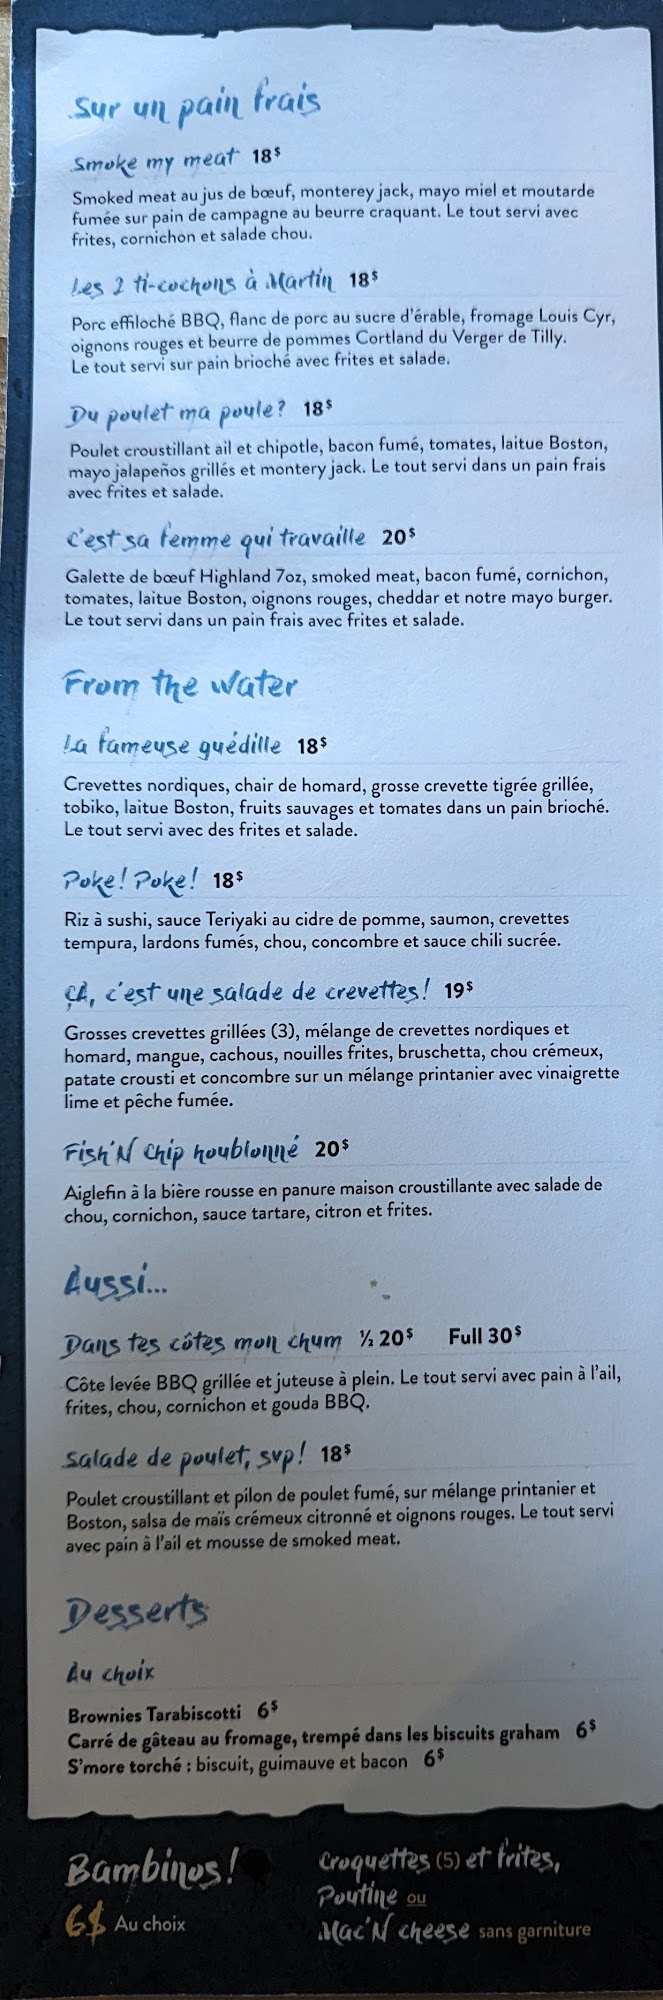 Sur un pain frais
Smoke my meat 18$
Smoked meat au jus de bœuf, monterey jack, mayo miel et moutarde
fumée sur pain de campagne au beurre craquant. Le tout servi avec
frites, cornichon et salade chou.
Les 2 ti-cochons à Martin 18$
Porc effiloché BBQ, flanc de porc au sucre d'érable, fromage Louis Cyr,
oignons rouges et beurre de pommes Cortland du Verger de Tilly.
Le tout servi sur pain brioché avec frites et salade.
Du poulet ma poule? 18$
Poulet croustillant ail et chipotle, bacon fumé, tomates, laitue Boston,
mayo jalapeños grillés et montery jack. Le tout servi dans un pain frais
avec frites et salade.
C'est sa femme qui travaille 20$
Galette de bœuf Highland 7oz, smoked meat, bacon fumé, cornichon,
tomates, laitue Boston, oignons rouges, cheddar et notre mayo burger.
Le tout servi dans un pain frais avec frites et salade.
From the water
La fameuse guédille 18$
Crevettes nordiques, chair de homard, grosse crevette tigrée grillée,
tobiko, laitue Boston, fruits sauvages et tomates dans un pain brioché.
Le tout servi avec des frites et salade.
Poke! Poke! 18$
Riz à sushi, sauce Teriyaki au cidre de pomme, saumon, crevettes
tempura, lardons fumés, chou, concombre et sauce chili sucrée.
ÇA, c'est une salade de crevettes! 19$
Grosses crevettes grillées (3), mélange de crevettes nordiques et
homard, mangue, cachous, nouilles frites, bruschetta, chou crémeux,
patate crousti et concombre sur un mélange printanier avec vinaigrette
lime et pêche fumée.
Fish'N Chip houblonné 20$
Aiglefin à la bière rousse en panure maison croustillante avec salade de
chou, cornichon, sauce tartare, citron et frites.
Aussi...
Dans tes côtes mon chum ½ 20$ Full 30$
Côte levée BBQ grillée et juteuse à plein. Le tout servi avec pain à l'ail,
frites, chou, cornichon et gouda BBQ.
Salade de poulet, svp! 18$
Poulet croustillant et pilon de poulet fumé, sur mélange printanier et
Boston, salsa de maïs crémeux citronné et oignons rouges. Le tout servi
avec pain à l'ail et mousse de smoked meat.
Desserts
Au choix
Brownies Tarabiscotti 6$
Carré de gâteau au fromage, trempé dans les biscuits graham 6$
S'more torché : biscuit, guimauve et bacon 6$
Bambinos!
6$ Au choix
Croquettes (5) et frites,
Poutine ou
Mac'N cheese sans garniture